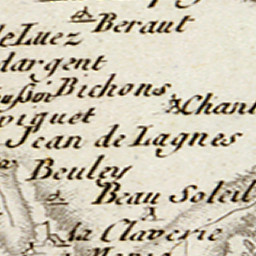 Beraut
de Luez
dargent
Bichons
Chant
piquet
Jean de Lagnes
Beuley
Beau Soleil
La Claverie